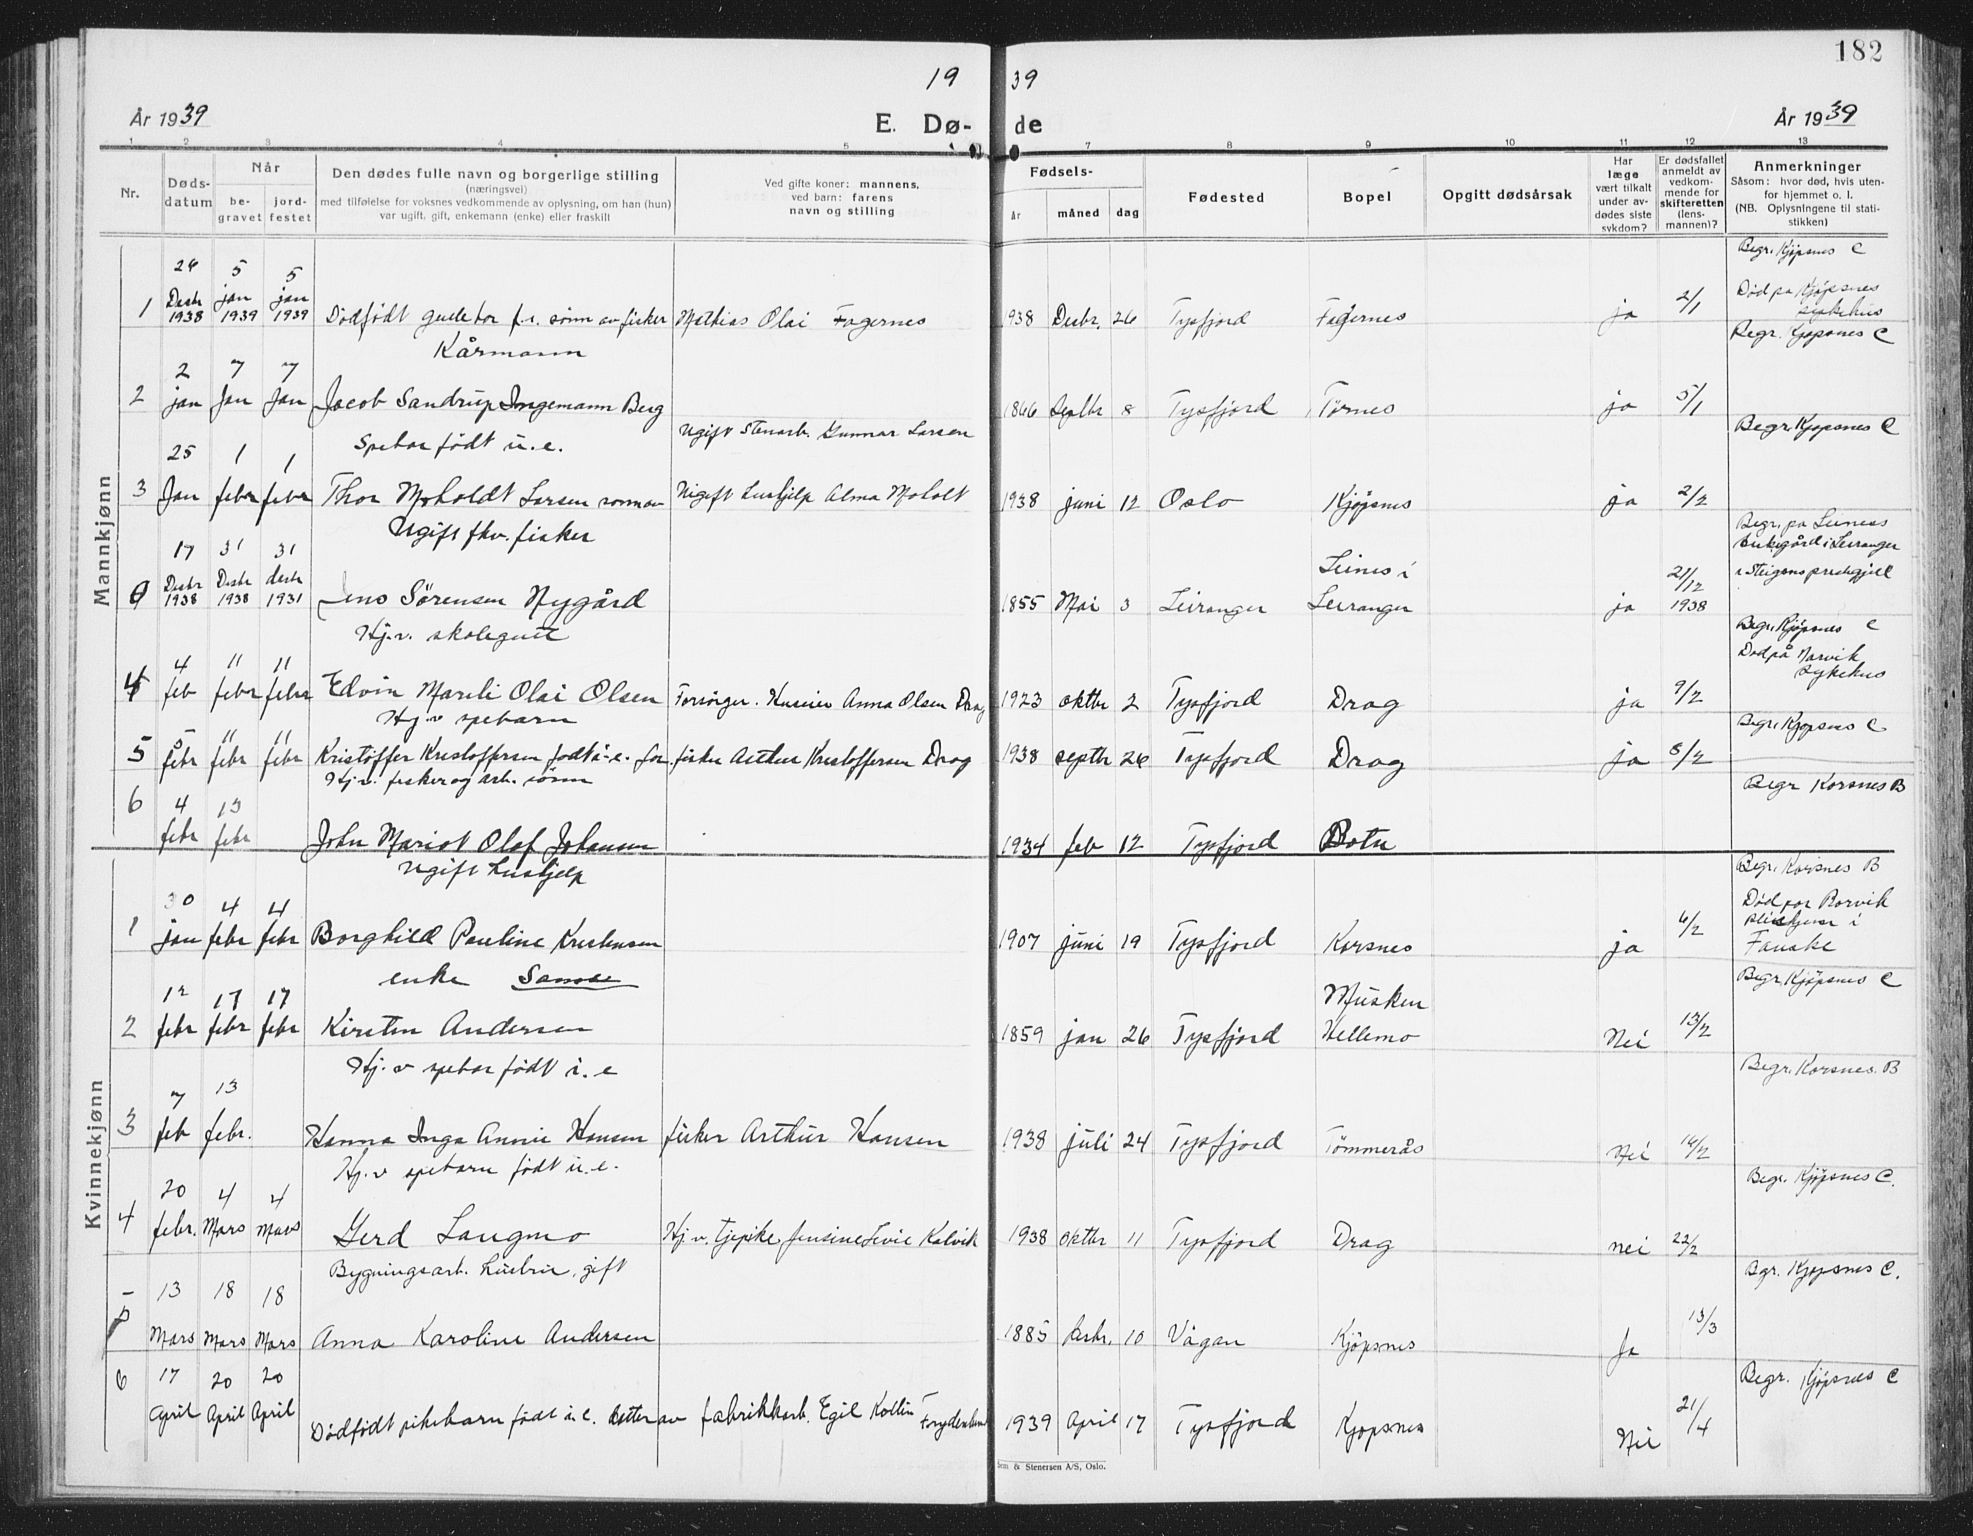 182
19 39
År 1939
E. Dø- de
År 1939
1 2 3 4 5 7 8 9 10 11 12 13
Nr.
Døds-
datum
Når
be-
gravet
jord-
festet
Den dødes fulle navn og borgerlige stilling
(næringsvei)
med tilføielse for voksnes vedkommende av oplysning, om han (hun)
var ugift, gift, enkemann (enke) eller fraskilt
Ved gifte koner: mannens,
ved barn: farens
navn og stilling
Fødsels-
år måned dag
Fødested
Bopel
Opgitt dødsårsak
Har
læge
vært tilkalt
under av-
dødes siste
sykdom?
Er dødsfallet
anmeldt av
vedkom-
mende for
skifteretten
(lens-
mannen)?
Anmerkninger
Såsom: hvor død, hvis uten-
for hjemmet o. l.
(NB. Oplysningene til stati-
stikken)
Mannkjønn
Begr. Kjøpsnes C
1 26 Desbr 1938 5 jan 1939 5 jan 1939 Dødfødt guttebor f. r. sønn av fisker Mathias Olai Fagernes 1938 Desbr. 26 Tysfjord Fagernes ja 2/1 Død på Kjøpsnes
sykehus
Kårmann Begr. Kjøpsnes C
2 2 jan 7 Jan 7 Jan Jacob Sandrup Ingemann Berg 1866 Septbr 8 Tysfjord Tørnes ja 5/1
Spebar født u. e. Ugift Stenarb. Gunnar Larsen Begr. Kjøpsnes C
3 25 Jan 1 febr 1 febr Thor Moholdt Larsen sønn av Ugift hushjelp Alma Moholt 1938 juni 12 Oslo Kjøpsnes ja 2/2
Ugift fhv. fisker Begr. på Leines
kirkegård i Leiranger
0 17 Desbr 1938 31 Desbr 1938 31 desbr 1931 Jens Sørensen Nygård 1855 Mai 3 Leiranger Leines i
Leiranger ja 21/12 1938 i Steigens prestegjell
Hj. v. skolegutt Begr. Kjøpsnes C
4 4 feb 11 febr 11 febr Edvin Mareli Olai Olsen Forsørger. Anna Olsen Drag 1923 oktbr 2 Tysfjord Drag ja 9/2 Død på Narvik
Sykehus
Hj. v spebarn Begr. Kjøpsnes C
5 5 febr 11 febr 11 febr Kristoffer Kristoffersen født i. e. for. fisker Arthur Kristoffersen Drag 1938 septbr 26 Tysfjord Drag ja 8/2
Hj. v. fisker og arb. sønn Begr Korsnes B
6 4 febr 13 febr John Mariot Olaf Johansen 1934 feb 12 Tysfjord Botn
Kvinnekjønn
Ugift hushjelp Begr. Korsnes B
1 30 jan 4 febr 4 febr Borghild Pauline Kristensen 1907 juni 19 Tysfjord Korsnes ja 6/2 Død på Rorvik
pleiehjem i
Fauske
enke Samme Begr. Kjøpsnes C
2 12 febr 17 febr 17 febr Kirsten Andersen 1859 jan 26 Tysfjord Musken
Hellemo Nei 13/2
Hj. v spebar født i. e Begr. Korsnes. B
3 7 feb 13 febr. Hanna Inga Annie Hansen fisker Arthur Hansen 1938 juli 24 Tysfjord Tømmerås Nei 14/2
Hj. v spebarn født u. e. Begr. Kjøpsnes C.
4 20 febr. 4 Mars 4 Mars Gerd Langmo Hj. v. tjepike Jensine Kalvik 1938 oktbr 11 Tysfjord Drag nei 22/2
Bygningsarb. hustru, gift Bgr. Kjøpsnes C.
5 13 Mars 18 Mars 18 Mars Anna Karoline Andersen 1885 Desbr. 10 Vågan Kjøpsnes Ja 13/3
Begr. Kjøpsnes C
6 17 April 20 April 20 April Dødfødt pikebarn født u. e. datter av fabrikkarb. Egil 1939 April 17 Tysfjord Kjøpsnes Nei 21/4
& Stenersen A/S, Oslo.